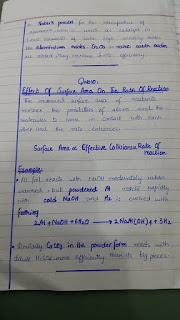 • In Haber's process for the manufacture of
ammonia iron is used as catalyst in
the Aluminium oxides, Cr₂O₃
are added they increase Iron's efficiency.
QNO10:
Effect Of Surface Area On The Rate Of Reaction
The increased surface area of reactants
increases the possibility of atoms and the
molecules to come in contact with each
other and the rate enhances.
Surface Area ∝ Effective Collisions ∝ Rate Of
reaction
Example:-
• Al foil reacts with NaOH moderately when
warmed, but powdered Al reacts rapidly
with cold NaOH and H₂ is evolved with
frothing
2Al + 2NaOH + 6H₂O → 2NaAl(OH)₄ + 3H₂
• Similarly CaCO₃ in the powder form reacts with
dilute H₂SO₄ more efficiently than its big pieces.